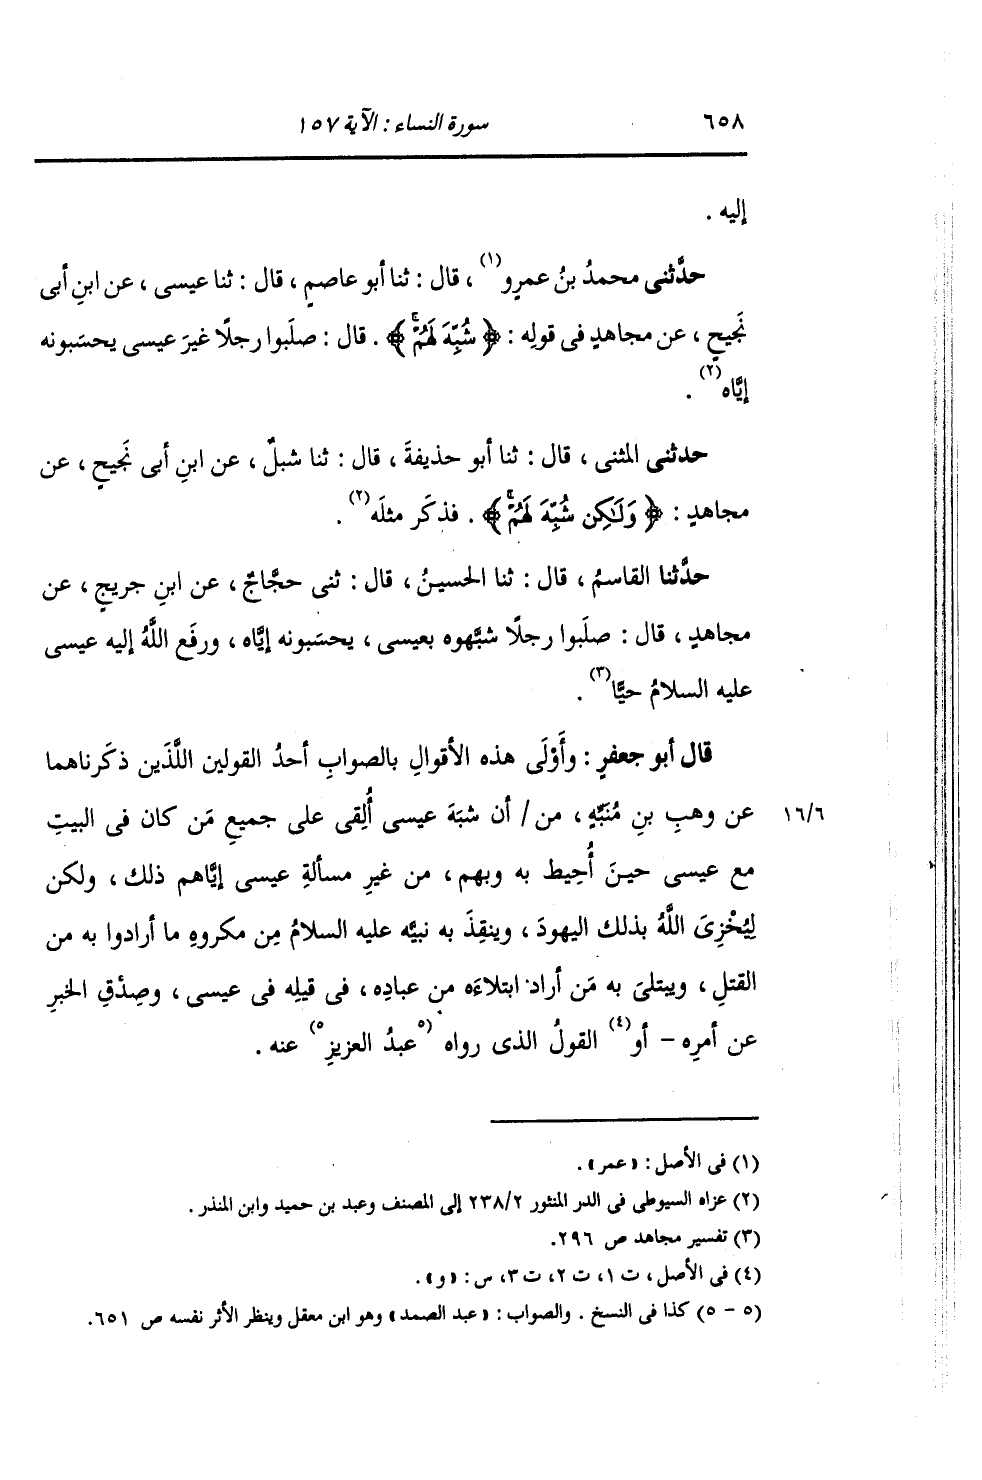 ٦٥٨ سورة النساء : الآية ١٥٧
إليه .
حدَّثنى محمدُ بنُ عمرٍو(١) ، قال : ثنا أبو عاصمٍ ، قال : ثنا عيسى ، عن ابنِ أبى
نَجيحٍ ، عن مجاهدٍ فى قولِه : ﴿ شُبِّهَ لَهُمْۚ ﴾ . قال : صلَبوا رجلًا غيرَ عيسى يحسَبونه
إيَّاه(٢) .
حدثنى المثنى ، قال : ثنا أبو حذيفةَ ، قال : ثنا شبلٌ ، عن ابنِ أبى نَجيحٍ ، عن
مجاهدٍ : ﴿ وَلَٰكِن شُبِّهَ لَهُمْۚ ﴾ . فذكَر مثلَه(٢) .
حدَّثنا القاسمُ ، قال : ثنا الحسينُ ، قال : ثنى حجَّاجٌ ، عن ابنِ جريجٍ ، عن
مجاهدٍ ، قال : صلَبوا رجلًا شبَّهوه بعيسى ، يحسَبونه إيَّاه ، ورفَع اللَّهُ إليه عيسى
عليه السلامُ حيًّا(٣) .
قال أبو جعفرٍ : وأَوْلَى هذه الأقوالِ بالصوابِ أحدُ القولين اللَّذَين ذكَرناهما
١٦/٦ عن وهبِ بنِ مُنَبِّهٍ ، من / أن شبَهَ عيسى أُلقِى على جميعِ مَن كان فى البيتِ
مع عيسى حينَ أُحِيط به وبهم ، من غيرِ مسألةِ عيسى إيَّاهم ذلك ، ولكن
لِيُخْزِىَ اللَّهُ بذلك اليهودَ ، وينقِذَ به نبيَّه عليه السلامُ مِن مكروهِ ما أرادوا به من
القتلِ ، ويبتلىَ به مَن أراد ابتلاءَه من عبادِه ، فى قيلِه فى عيسى ، وصِدْقِ الخبرِ
عن أمرِه – أو(٤) القولُ الذى رواه (٥عبدُ العزيزِ٥) عنه .
(١) فى الأصل : « عمر » .
(٢) عزاه السيوطى فى الدر المنثور ٢٣٨/٢ إلى المصنف وعبد بن حميد وابن المنذر .
(٣) تفسير مجاهد ص ٢٩٦.
(٤) فى الأصل ، ت ١، ت ٢، ت ٣، س : « و » .
(٥ – ٥) كذا فى النسخ . والصواب : « عبد الصمد » وهو ابن معقل وينظر الأثر نفسه ص ٦٥١.